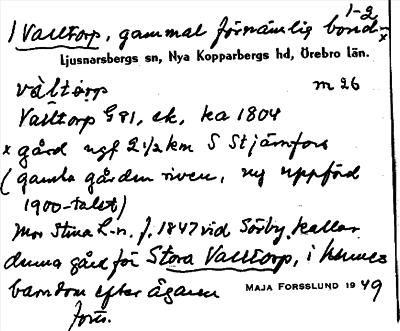 1-2
1 Valltorp, gammal förnämlig bond-x
Ljusnarsbergs sn, Nya Kopparbergs hd, Örebro län.
vàltòrp m 26
Valltorp G 81, ek, ka 1804
x gård ngf 2 1/2 km S Stjärnfors
(gamla gården riven, ny uppförd
1900-talet)
Mor Stina L-n f. 1847 vid Sörby, kallar
denna gård för Stora Valltorp, i hennes
barndom efter ägaren
MAJA FORSSLUND 19 49
forts.